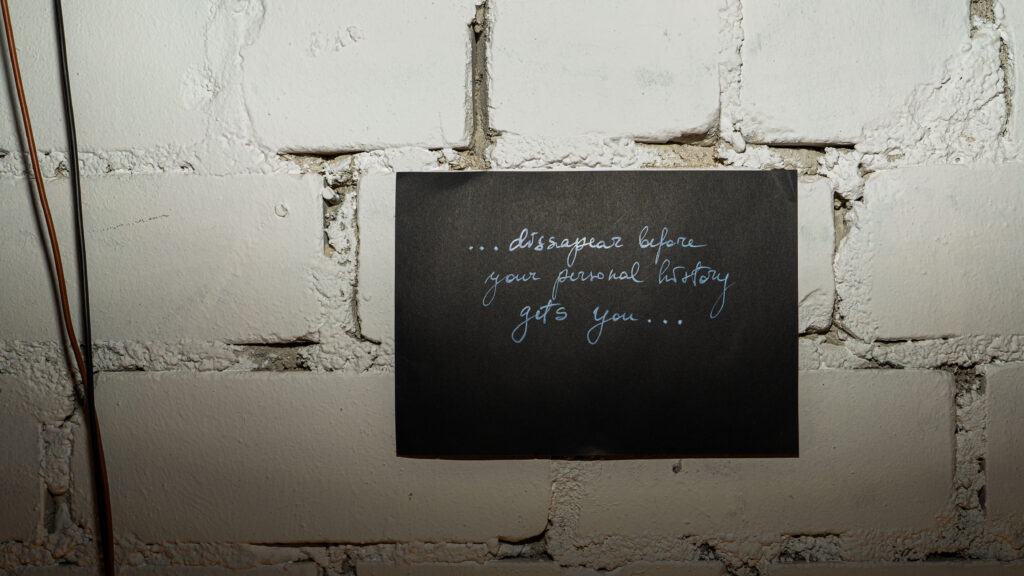 ... dissapear before
your personal history
gets you...